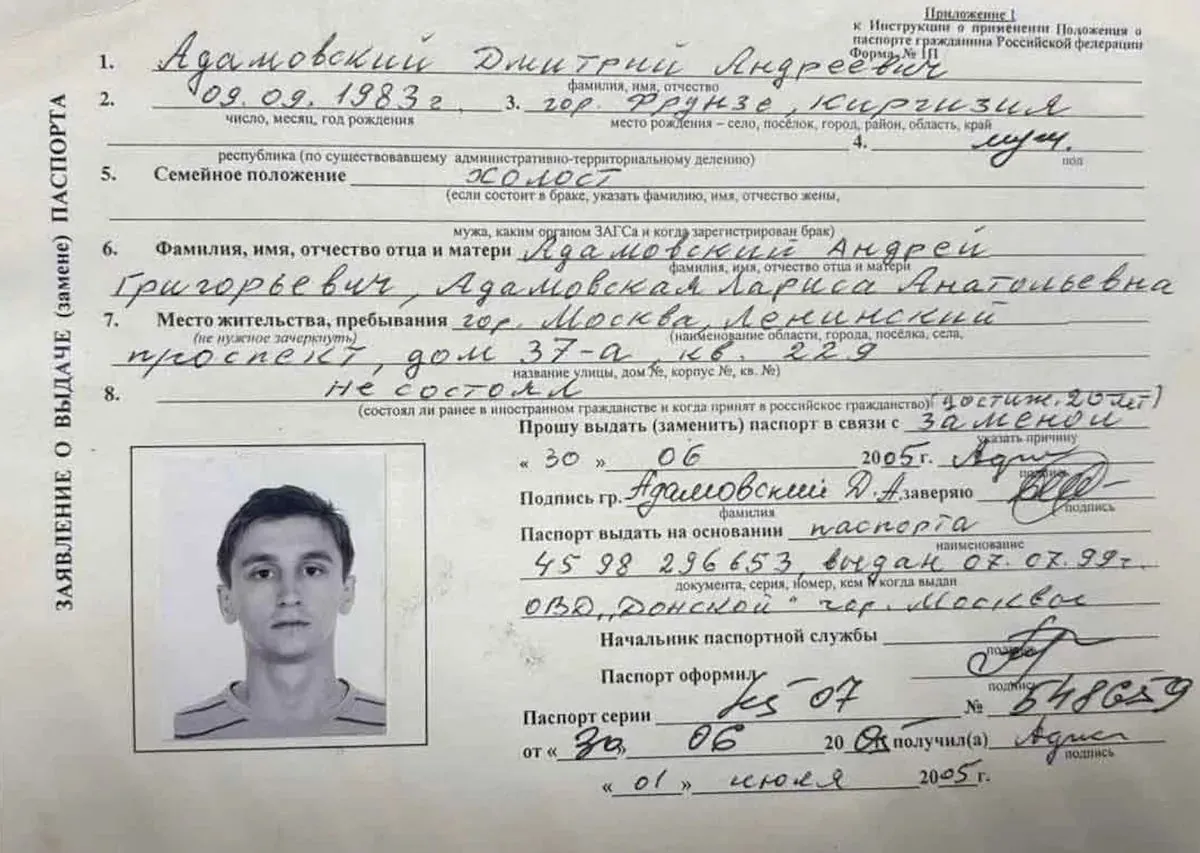 Приложение 1
к Инструкции о применении Положения о
паспорте гражданина Российской федерации
Форма, № 1П
ЗАЯВЛЕНИЕ О ВЫДАЧЕ (замене) ПАСПОРТА
1. Адамовский Дмитрий Андреевич
фамилия, имя, отчество
2. 09.09.1983 г. 3. гор. Фрунзе, Киргизия
число, месяц, год рождения место рождения – село, посёлок, город, район, область, край
4. муж.
республика (по существовавшему административно-территориальному делению) пол
5. Семейное положение холост
(если состоит в браке, указать фамилию, имя, отчество жены,
мужа, каким органом ЗАГСа и когда зарегистрирован брак)
6. Фамилия, имя, отчество отца и матери Адамовский Андрей
фамилия, имя, отчество отца и матери
Григорьевич, Адамовская Лариса Анатольевна
7. Место жительства, пребывания гор. Москва, Ленинский
(не нужное зачеркнуть) (наименование области, города, посёлка, села,
проспект, дом 37-а, кв. 229
название улицы, дом №, корпус №, кв. №)
8. не состоял
(состоял ли ранее в иностранном гражданстве и когда принят в российское гражданство) (достиж. 20 лет)
Прошу выдать (заменить) паспорт в связи с заменой
указать причину
« 30 » 06 2005 г.
подпись
Подпись гр. Адамовский Д.А. заверяю
фамилия подпись
Паспорт выдать на основании паспорта
наименование
45 98 296653, выдан 07.07.99г.
документа, серия, номер, кем и когда выдан
ОВД „Донской" гор. Москвы
Начальник паспортной службы
подпись
Паспорт оформил
подпись
Паспорт серии 45 07 № 548659
от « 30 » 06 20 получил(а)
подпись
« 01 » июля 2005 г.